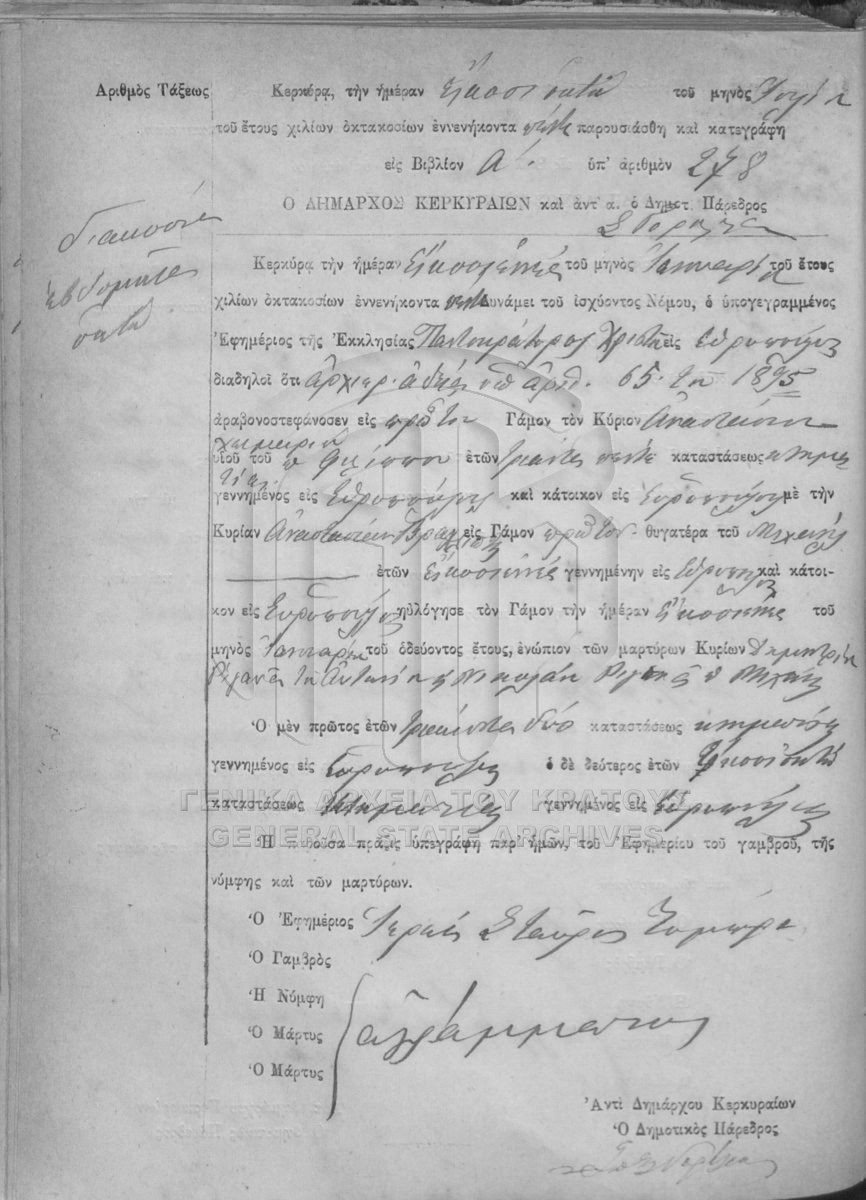 Ἀριθμὸς Τάξεως
Κερκύρᾳ, τὴν ἡμέραν εἰκοσι οκτώ τοῦ μηνὸς
τοῦ ἔτους χιλίων ὀκτακοσίων ἐννενήκοντα πέντε παρουσιάσθη καὶ κατεγράφη
εἰς Βιβλίον Α'. ὑπ' ἀριθμὸν 278
Ο ΔΗΜΑΡΧΟΣ ΚΕΡΚΥΡΑΙΩΝ καὶ ἀντ' α. ὁ Δημοτ. Πάρεδρος
Διακόσια
ἑβδομήντα
οκτώ
Κερκύρᾳ τὴν ἡμέραν εἰκοσιεννέα τοῦ μηνὸς Ἰανουαρίου τοῦ ἔτους
χιλίων ὀκτακοσίων ἐννενήκοντα πέντε Δυνάμει τοῦ ἰσχύοντος Νόμου, ὁ ὑπογεγραμμένος
Ἐφημέριος τῆς Ἐκκλησίας Παντοκράτορος Χριστοῦ εἰς Εὐροπούλους
διαδηλοῖ ὅτι ἀρχιερ. ἀδείας ὑπ ἀριθ. 65. τοῦ 1895
ἀραβονοστεφάνοσεν εἰς πρῶτον Γάμον τὸν Κύριον Ἀναστάσιον
υἱοῦ τοῦ π Φιλίππου ἐτῶν τριάντα πέντε καταστάσεως κτηματίας
γεννημένος εἰς Εὐροπούλους καὶ κάτοικον εἰς Εὐροπούλους μὲ τὴν
Κυρίαν Ἀναστασίαν εἰς Γάμον πρῶτον θυγατέρα τοῦ Μιχαήλ
ἐτῶν εἰκοσιεννέα γεννημένην εἰς Εὐροπούλους καὶ κάτοι-
κον εἰς Εὐροπούλους ηὐλόγησε τὸν Γάμον τὴν ἡμέραν εἰκοσιεννέα τοῦ
μηνὸς Ἰανουαρίου τοῦ ὁδεύοντος ἔτους, ἐνώπιον τῶν μαρτύρων Κυρίων Δημητρίου
τοῦ Ἀντωνίου κ Νικολάου Μιχαήλ
Ὁ μὲν πρῶτος ἐτῶν τριάκοντα δύο καταστάσεως κτηματίας
γεννημένος εἰς Εὐροπούλους ὁ δὲ δεύτερος ἐτῶν εἰκοσι οκτώ
καταστάσεως κτηματίας γεννημένος εἰς Εὐροπούλους
ΓΕΝΙΚΑ ΑΡΧΕΙΑ ΤΟΥ ΚΡΑΤΟΥΣ
GENERAL STATE ARCHIVES
Ἡ παροῦσα πρᾶξις ὑπεγράφη παρ' ἡμῶν, τοῦ Ἐφημερίου τοῦ γαμβροῦ, τῆς
νύμφης καὶ τῶν μαρτύρων.
Ὁ Ἐφημέριος Ἱερεὺς Σταῦρος
Ὁ Γαμβρὸς
Ἡ Νύμφη
Ὁ Μάρτυς ἀγράμματοι
Ὁ Μάρτυς
Ἀντὶ Δημάρχου Κερκυραίων
Ὁ Δημοτικὸς Πάρεδρος